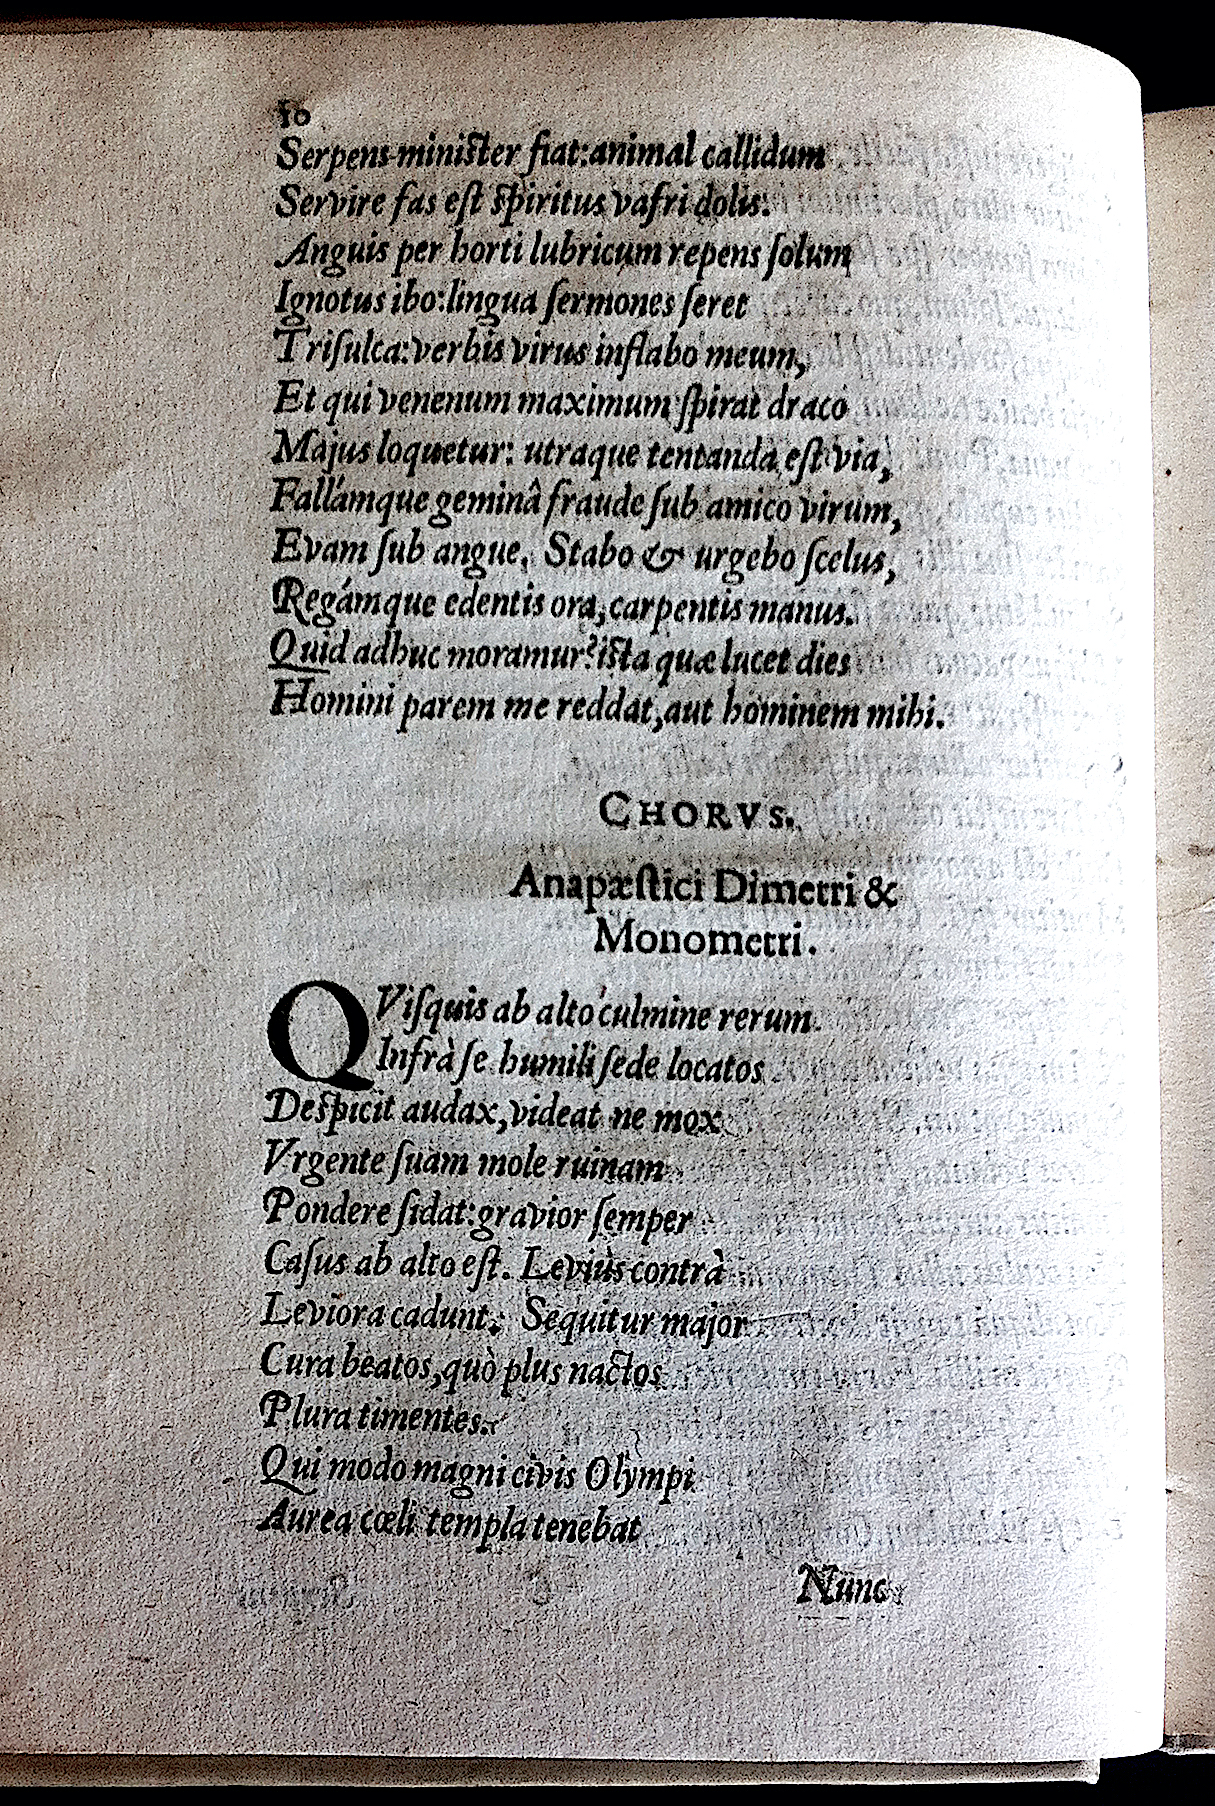 10
Serpens minister fiat: animal callidum
Servire fas est spiritus vafri dolis.
Anguis per horti lubricum repens solum
Ignotus ibo: lingua sermones seret
Trisulca: verbis virus inflabo meum,
Et qui venenum maximum spirat draco
Majus loquetur: utraque tentanda est via,
Fallámque geminâ fraude sub amico virum,
Evam sub angue. Stabo & urgebo scelus,
Regámque edentis ora, carpentis manus.
Quid adhuc moramur? ista quæ lucet dies
Homini parem me reddat, aut hominem mihi.
CHORVS.
Anapæstici Dimetri &
Monometri.
QVisquis ab alto culmine rerum
Infrà se humili sede locatos
Despicit audax, videat ne mox
Vrgente suam mole ruinam
Pondere sidat: gravior semper
Casus ab alto est. Leviùs contrà
Leviora cadunt. Sequitur major
Cura beatos, quò plus nactos
Plura timentes.
Qui modo magni civis Olympi
Aurea cœli templa tenebat
Nunc